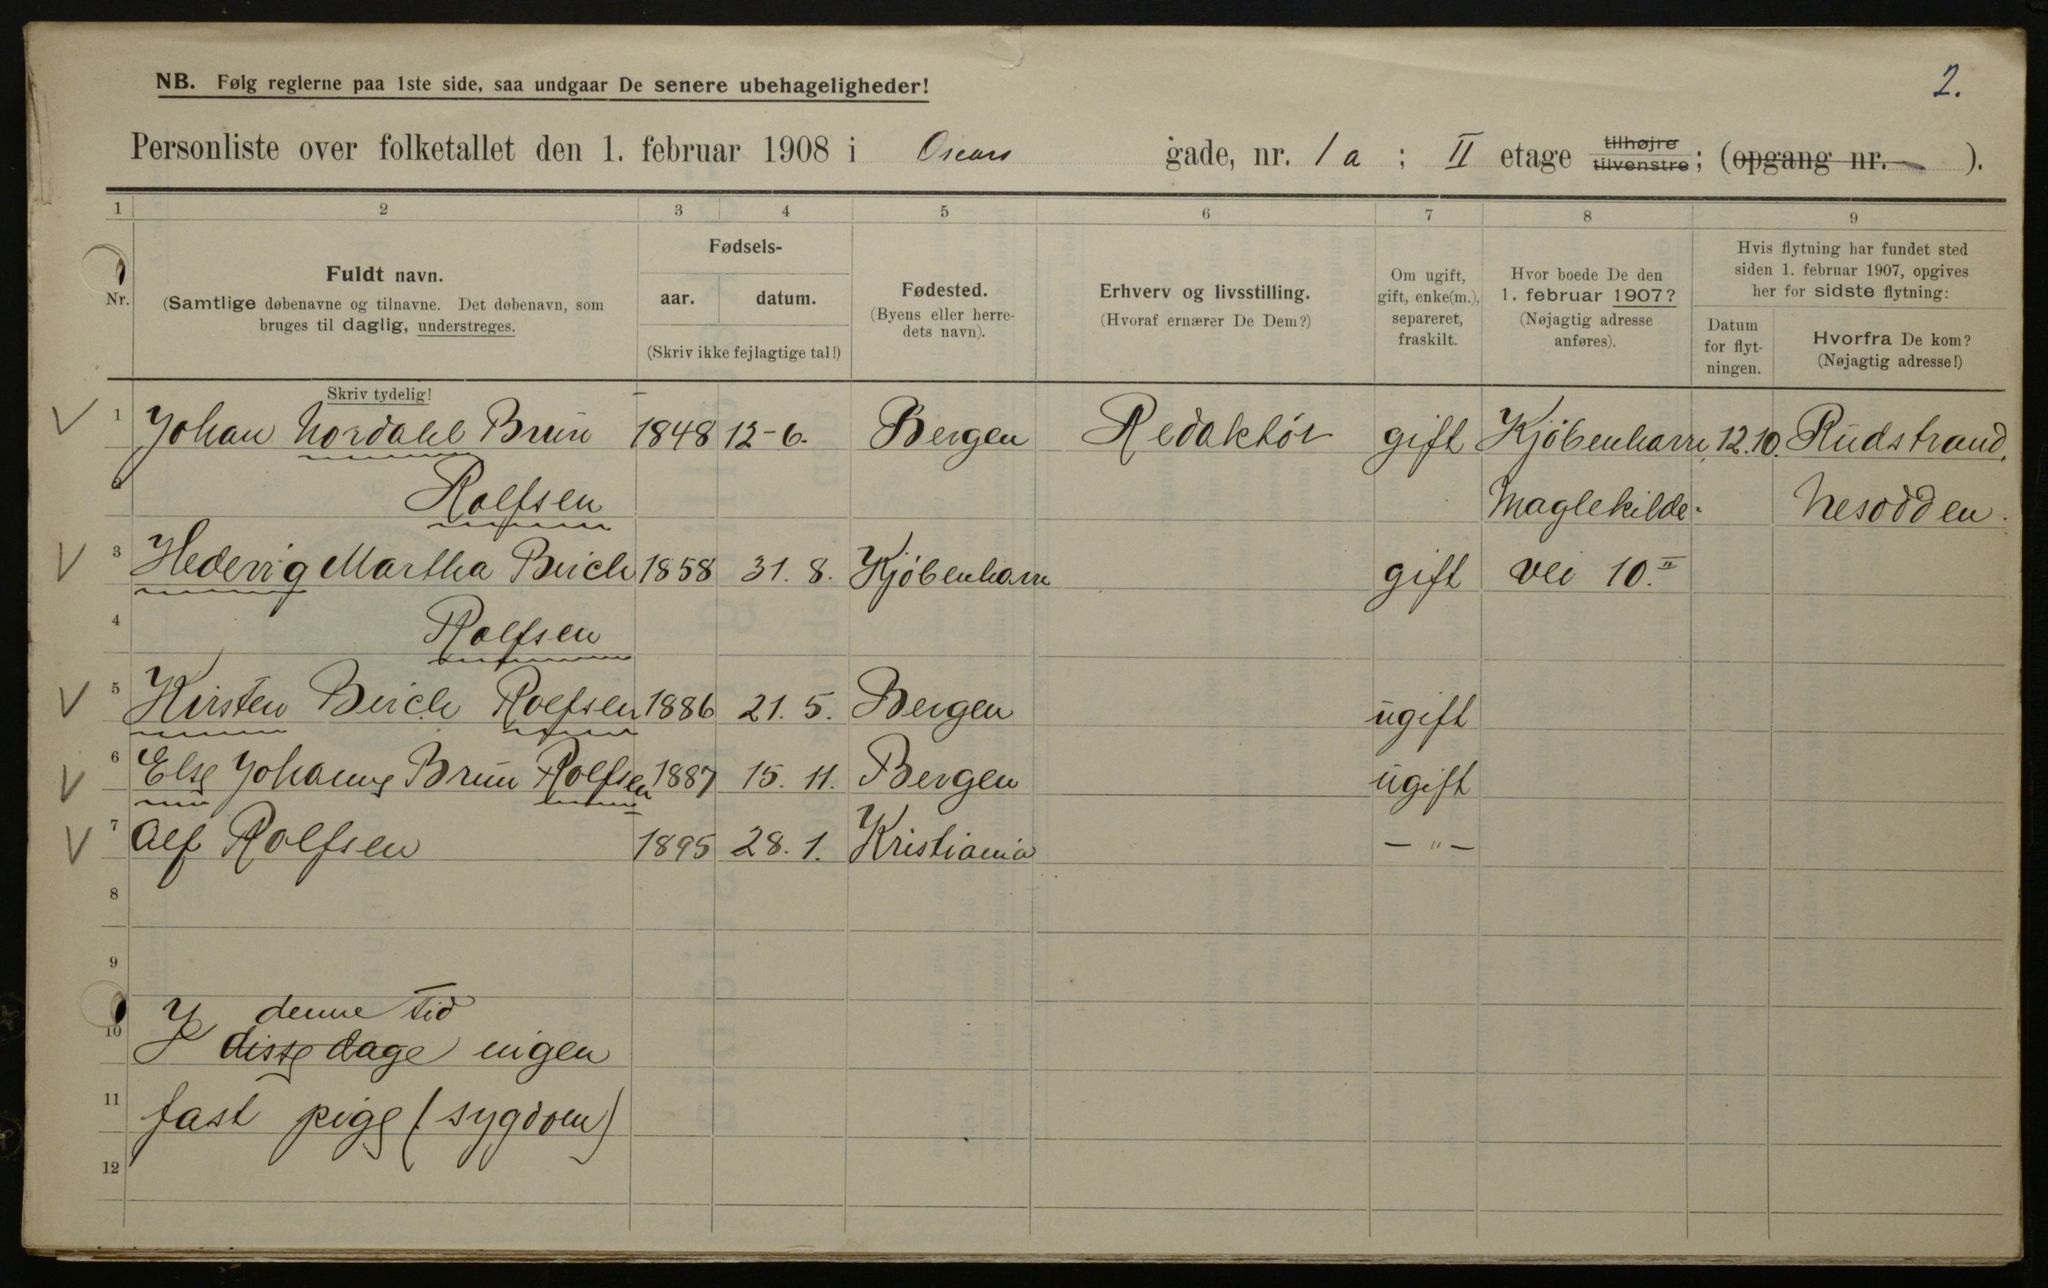 2.
NB. Følg reglerne paa 1ste side, saa undgaar De senere ubehageligheder!
Personliste over folketallet den 1. februar 1908 i Oscars gade, nr. 1a ; II etage tilhøjre tilvenstre ; (opgang nr. ).
1 2 3 4 5 6 7 8 9
Nr.
Fuldt navn.
(Samtlige døbenavne og tilnavne. Det døbenavn, som
bruges til daglig, understreges.
Fødsels-
aar. datum.
(Skriv ikke fejlagtige tal!)
Fødested.
(Byens eller herre-
dets navn).
Erhverv og livsstilling.
(Hvoraf ernærer De Dem?)
Om ugift,
gift, enke(m.),
separeret,
fraskilt.
Hvor boede De den
1. februar 1907?
(Nøjagtig adresse
anføres).
Hvis flytning har fundet sted
siden 1. februar 1907, opgives
her for sidste flytning:
Datum
for flyt-
ningen.
Hvorfra De kom?
(Nøjagtig adresse!)
Skriv tydelig!
1 Johan Nordahl Brun 1848 12-6. Bergen Redaktör gift Kjöbenhavn, 12.10. Rudstrand,
2 Rolfsen Maglekilde- Nesodden.
3 Hedevig Martha Birch 1858 31. 8. Kjöbenhavn gift vei 10.II
4 Rolfsen
5 Kirsten Birch Rolfsen 1886 21. 5. Bergen ugift
6 Else Johanne Brun Rolfsen 1887 15. 11. Bergen ugift
7 Alf Rolfsen 1895 28. 1. Kristiania — " —
8
9
denne tid
10 I disse dage ingen
11 fast pige (sygdom)
12